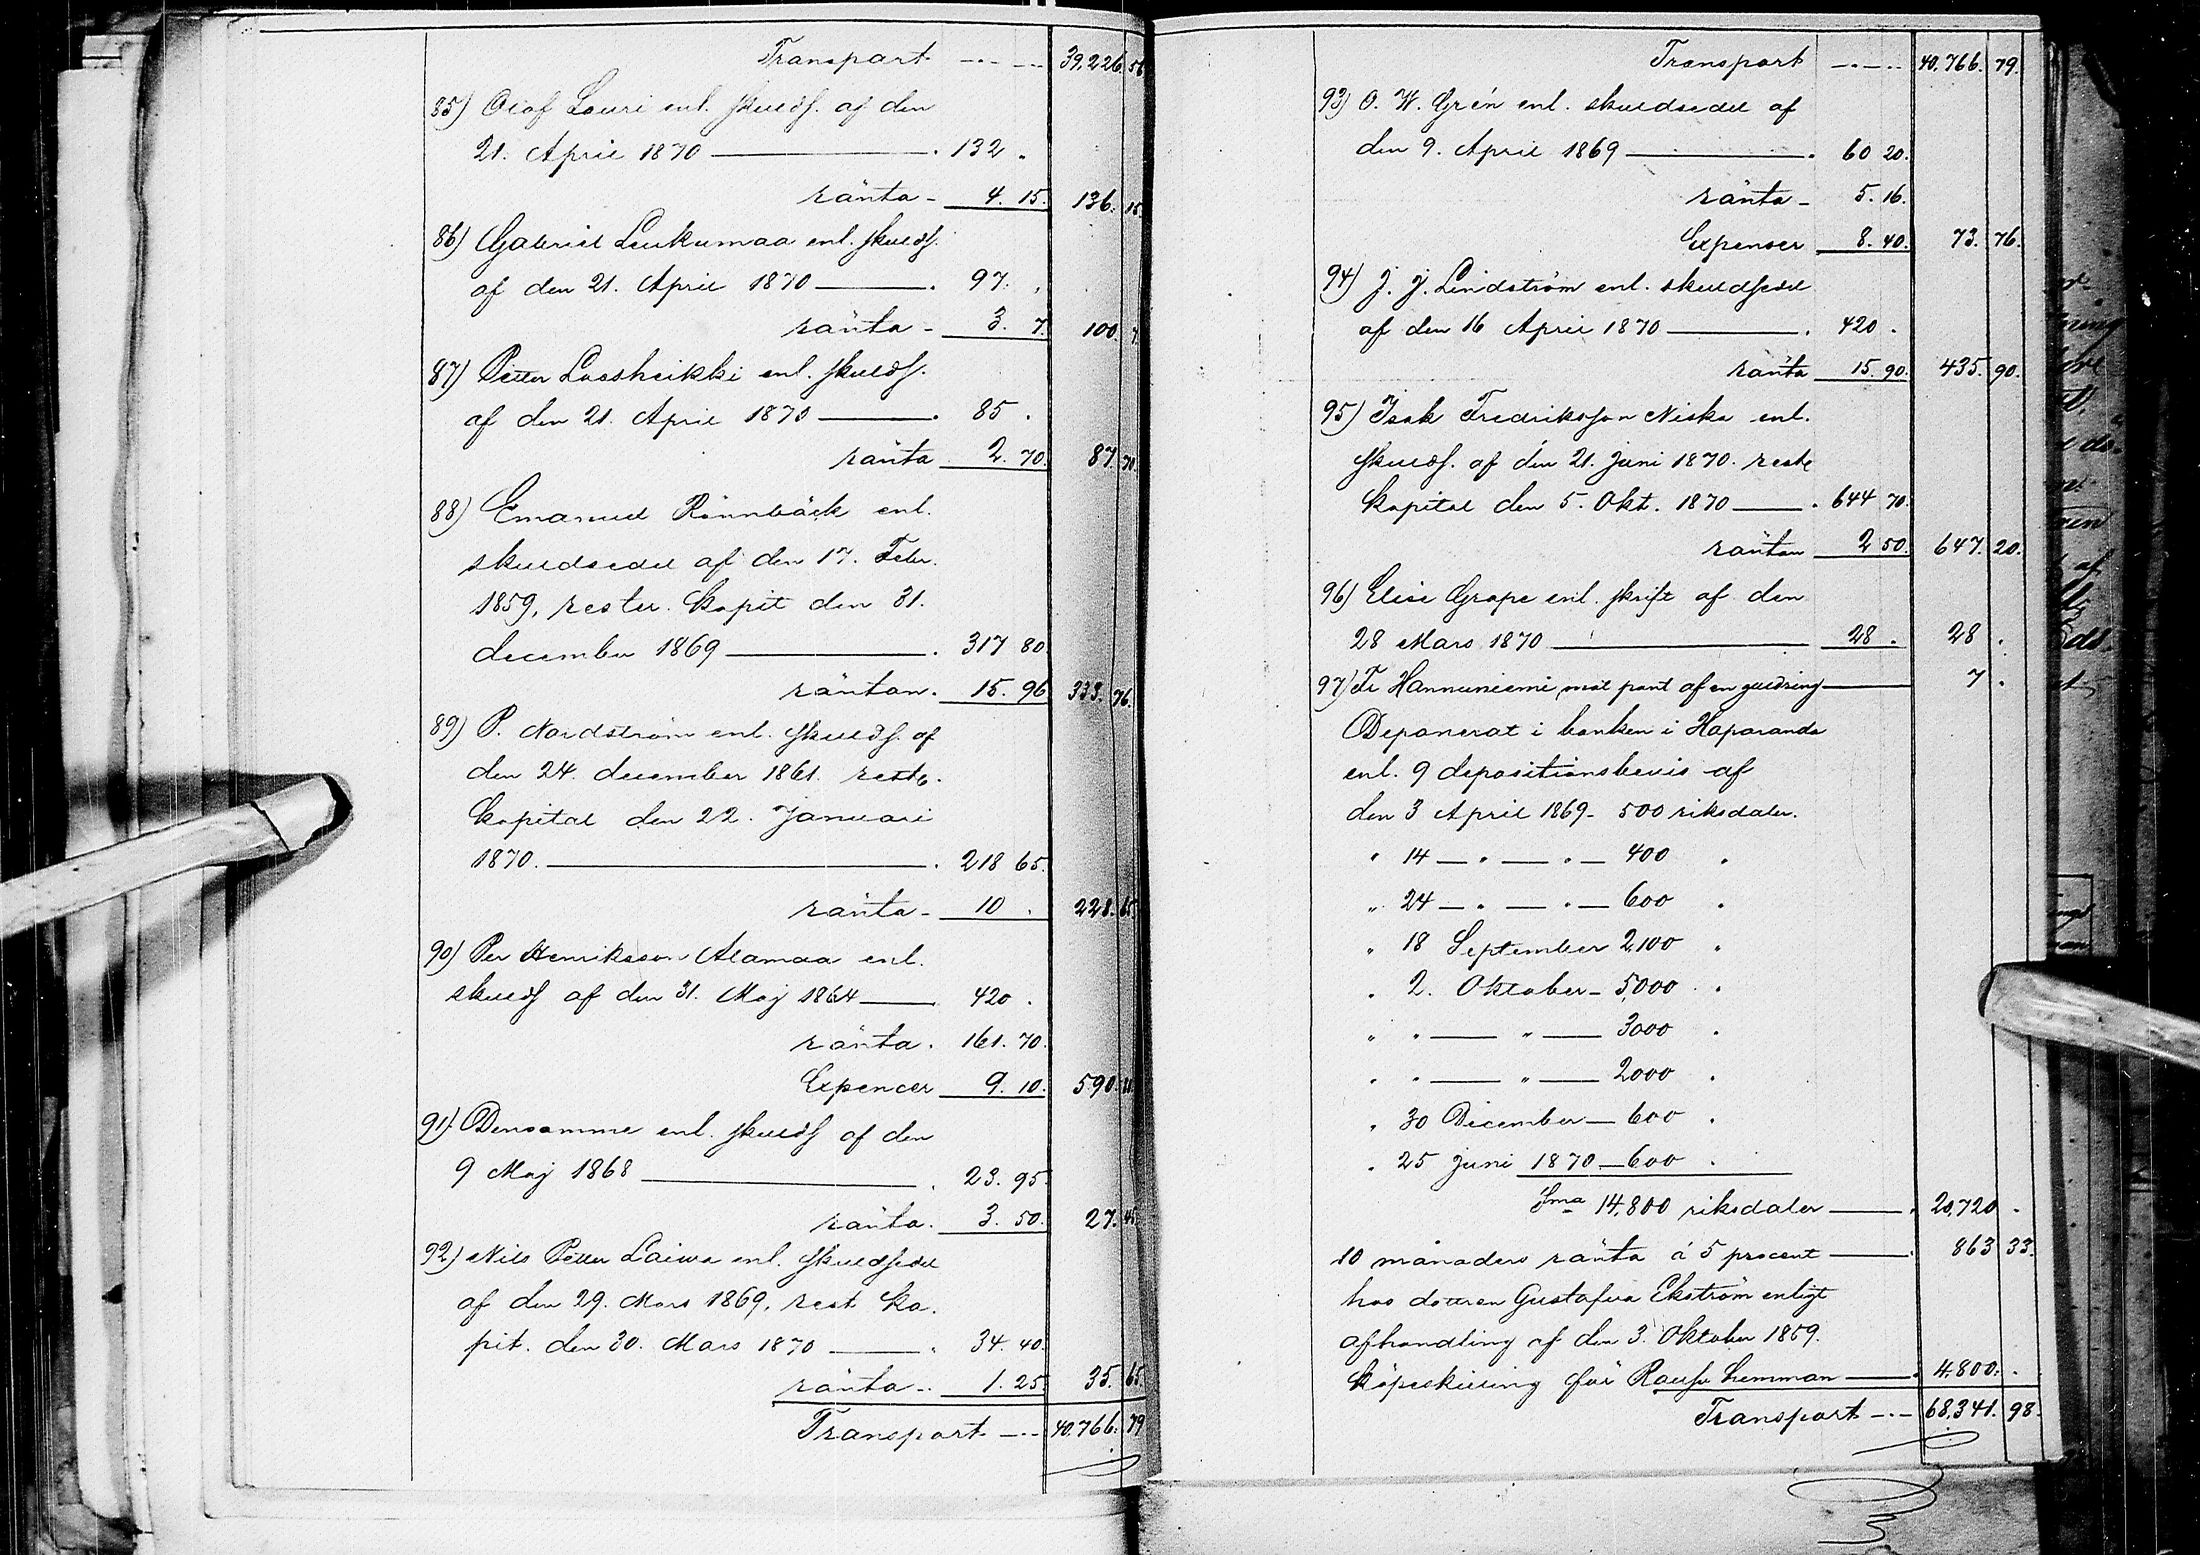 Transport 39,226. 56
85) Olof Lauri enl. skulds. af den
21. April 1870 132.
ränta - 4. 15. 136. 15.
86) Gabriel Leukumaa enl. skulds.
af den 21. April 1870 97.
ränta - 3. 7. 100. 7.
87) Petter Lassheikki enl. skulds.
af den 21. April 1870 85.
ränta 2. 70. 87. 70.
88) Emanuel Rönnbäck enl.
skuldsedel af den 17. Febr.
1859, rester. Kapit den 31.
december 1869 317 80.
räntan. 15. 96 333. 76.
89) P. Nordström enl. skulds. af
den 24. december 1861. reste.
Kapital den 22. Januari
1870. 218 65.
ränta - 10. 228. 65.
90) Per Henriksson Alamaa enl.
skulds af den 31. Maj 1864 420.
ränta. 161. 70.
Expencer 9. 10. 590.
91) Densamme enl. skulds af den
9 Maj 1868 23. 95.
ränta. 3. 50. 27. 45.
92) Nils Petter Laiwa enl. skuldsedel
af den 29. Mars 1869, rest Ka.
pit. den 30. Mars 1870 34. 40.
ränta 1. 25. 35. 65.
Transport 40,766. 79
Transport 40,766. 79.
93) O. W. Grén enl. skuldsedel af
den 9. April 1869 60 20.
ränta - 5. 16.
Expenser 8. 40. 73. 76.
94) J. J. Lindström enl. skuldsedel
af den 16 April 1870 420.
ränta 15. 90. 435. 90.
95) Isak Fredriksson Niska enl.
skulds. af den 21. Juni 1870. reste
Kapital den 5. Okt. 1870 644 70.
räntan 2 50. 647. 20.
96) Elise Grape enl. skrift af den
28 Mars 1870 28. 28.
97) Fr Hannuniemi mot pant af en guldring 7.
Deponerat i banken i Haparanda
enl. 9 depositionsbevis af
den 3 April 1869 - 500 riksdaler.
" 14 — " — " — 400 "
" 24 — " — " — 600 "
" 18 September 2,100 "
" 2. Oktober - 5,000 "
" " — " — 3000 "
" " — " — 2000 "
" 30 December — 600 "
" 25 Juni 1870 — 600 "
Sma 14,800 riksdaler 20,720.
10 månaders ränta á 5 procent 863 33.
hos dottren Gustafva Ekström enligt
afhandling af den 3. Oktober 1869.
Köpeskilling för Lumman 4,800.
Transport 68,341. 98.